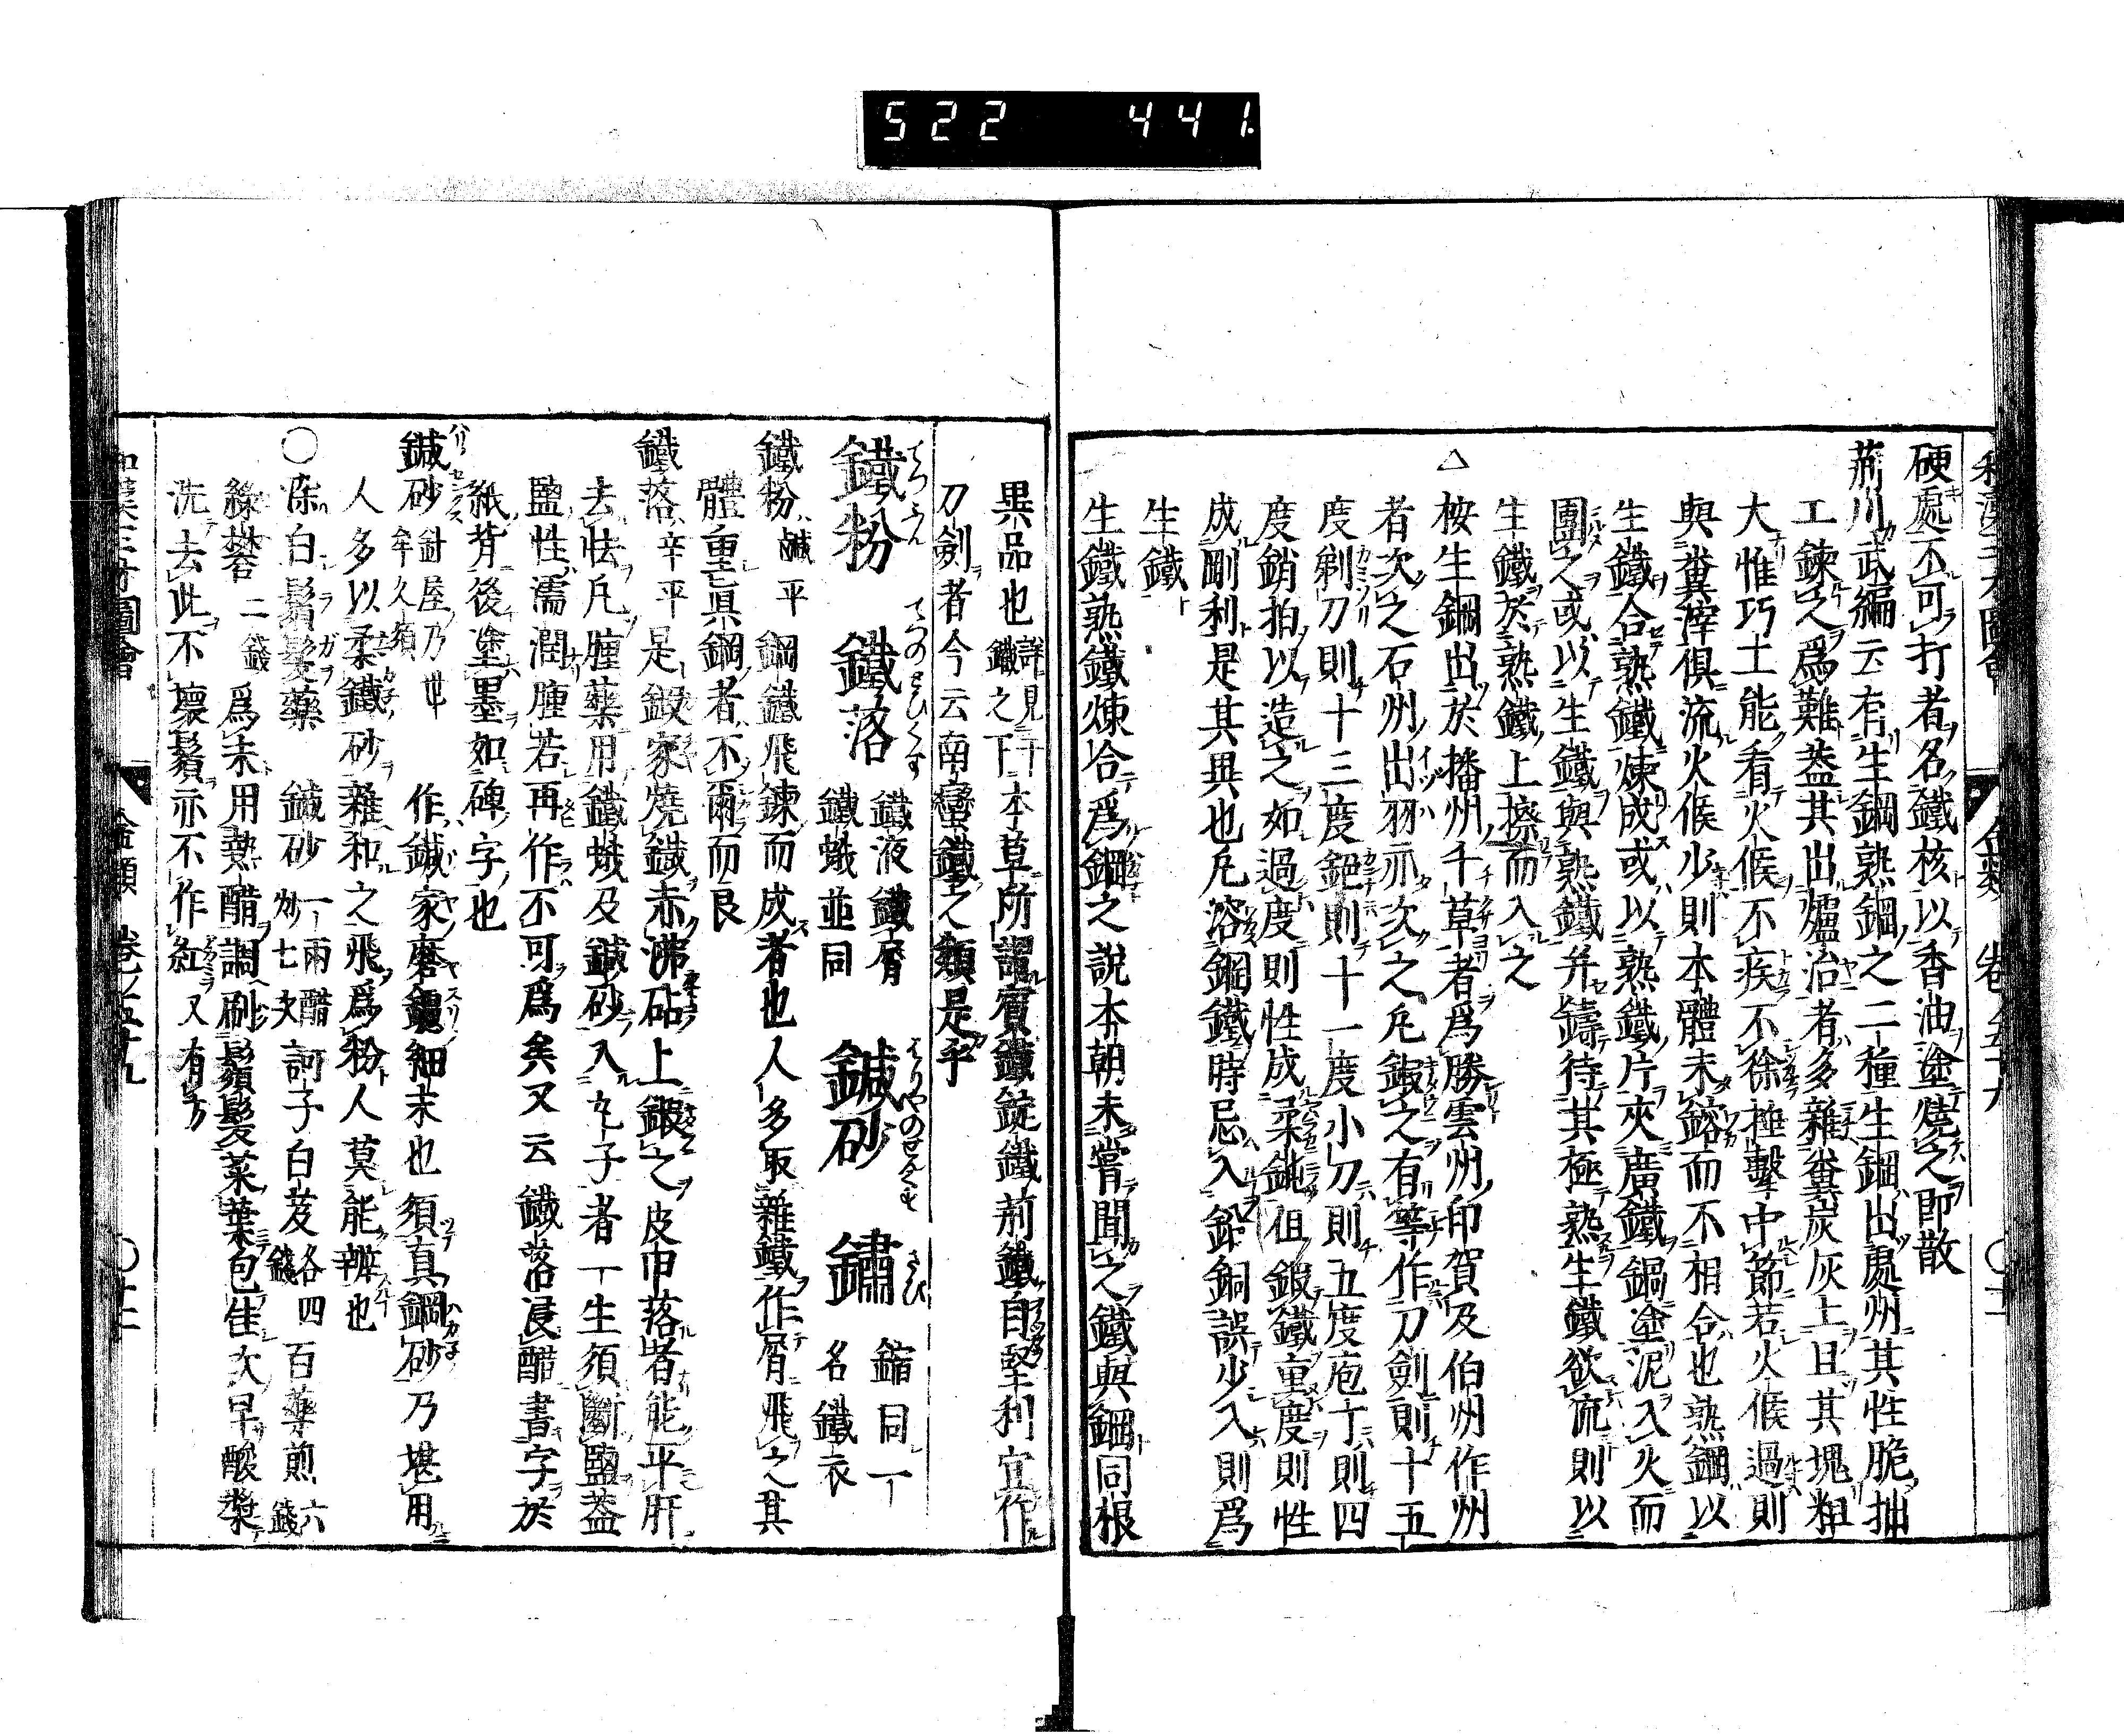 522 441
和漢三才圖會 金類 卷ノ五十九
硬處不可打者名鐵核以香油塗燒之即散
荊川武編云有生鋼熟鋼之二種生鋼出處州其性脆拙
工鍊之爲難蓋其出爐冶者多雜糞炭灰土且其塊粗
大惟巧工能看火候不疾不徐捶擊中節若火候過則
與糞滓俱流火候少則本體未鎔而不相合也熟鋼以
生鐵合熟鐵煉成或以熟鐵片夾廣鐵鍋塗泥入火而
團之或以生鐵與熟鐵并鑄待其極熟生鐵欲流則以
生鐵於熟鐵上擦而入之
△按生鋼出於播州千草者爲勝雲州印賀及伯州作州
者次之石州出羽亦次之凡鍛之有等作刀劍則十五
度剃刀則十三度鉋則十一度小刀則五度庖丁則四
度銷拍以造之如過度則性成柔鈍但鍜鐵重度則性
成剛利是其異也凡溶鋼鐵時忌入鉛銅誤少入則爲
生鐵
生鐵熟鐵煉合爲鋼之說本朝未嘗聞之鐵與鋼同根
異品也詳見于鐵之下本草所謂賓鐵錠鐵荊鐵自堅利宜作
刀劍者今云南蠻鐵之類是乎
鐵粉 てつふん
鐵落 てつのせひくず 鐵液 鐵屑 鐵蛾並同
鍼砂 はりやのせんくず
鏽 さび 鏥同 一名鐵衣
鐵粉鹹平 鋼鐵飛鍊而成者也人多取雜鐵作屑飛之其
體重眞鋼者不爾而良
鐵落辛平 是鍛家燒鐵赤沸砧上鍛之皮甲落者能平肝
去怯凡腫藥用鐵蛾及鍼砂入丸子者一生須斷鹽蓋
鹽性濡潤腫若再作不可爲矣又云鐵落浸醋書字於
紙背後塗墨如碑字也
鍼砂 針屋乃世牟久須 作鍼家磨鑢細末也須真鋼砂乃堪用
人多以柔鐵砂雜和之飛爲粉人莫能辨也
○染白鬚髮藥 鍼砂一兩醋炒七次 訶子白芨各四錢 百藥煎六錢
綠礬二錢 爲末用熱醋調刷鬚髮菜葉包住次早酸漿
洗去此不壞鬚亦不作紅又有方
和漢三才圖會 金類 卷ノ五十九